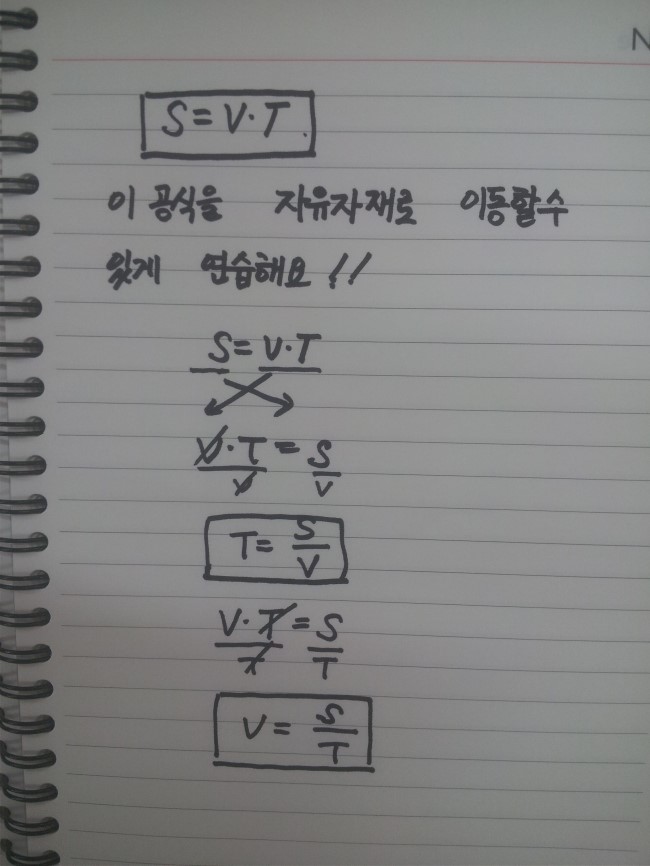 N
S = V · T
이 공식을 자유자재로 이동할수
있게 연습해요 !!
S = V · T
V · T / V = S / V
T = S / V
V · T / T = S / T
V = S / T